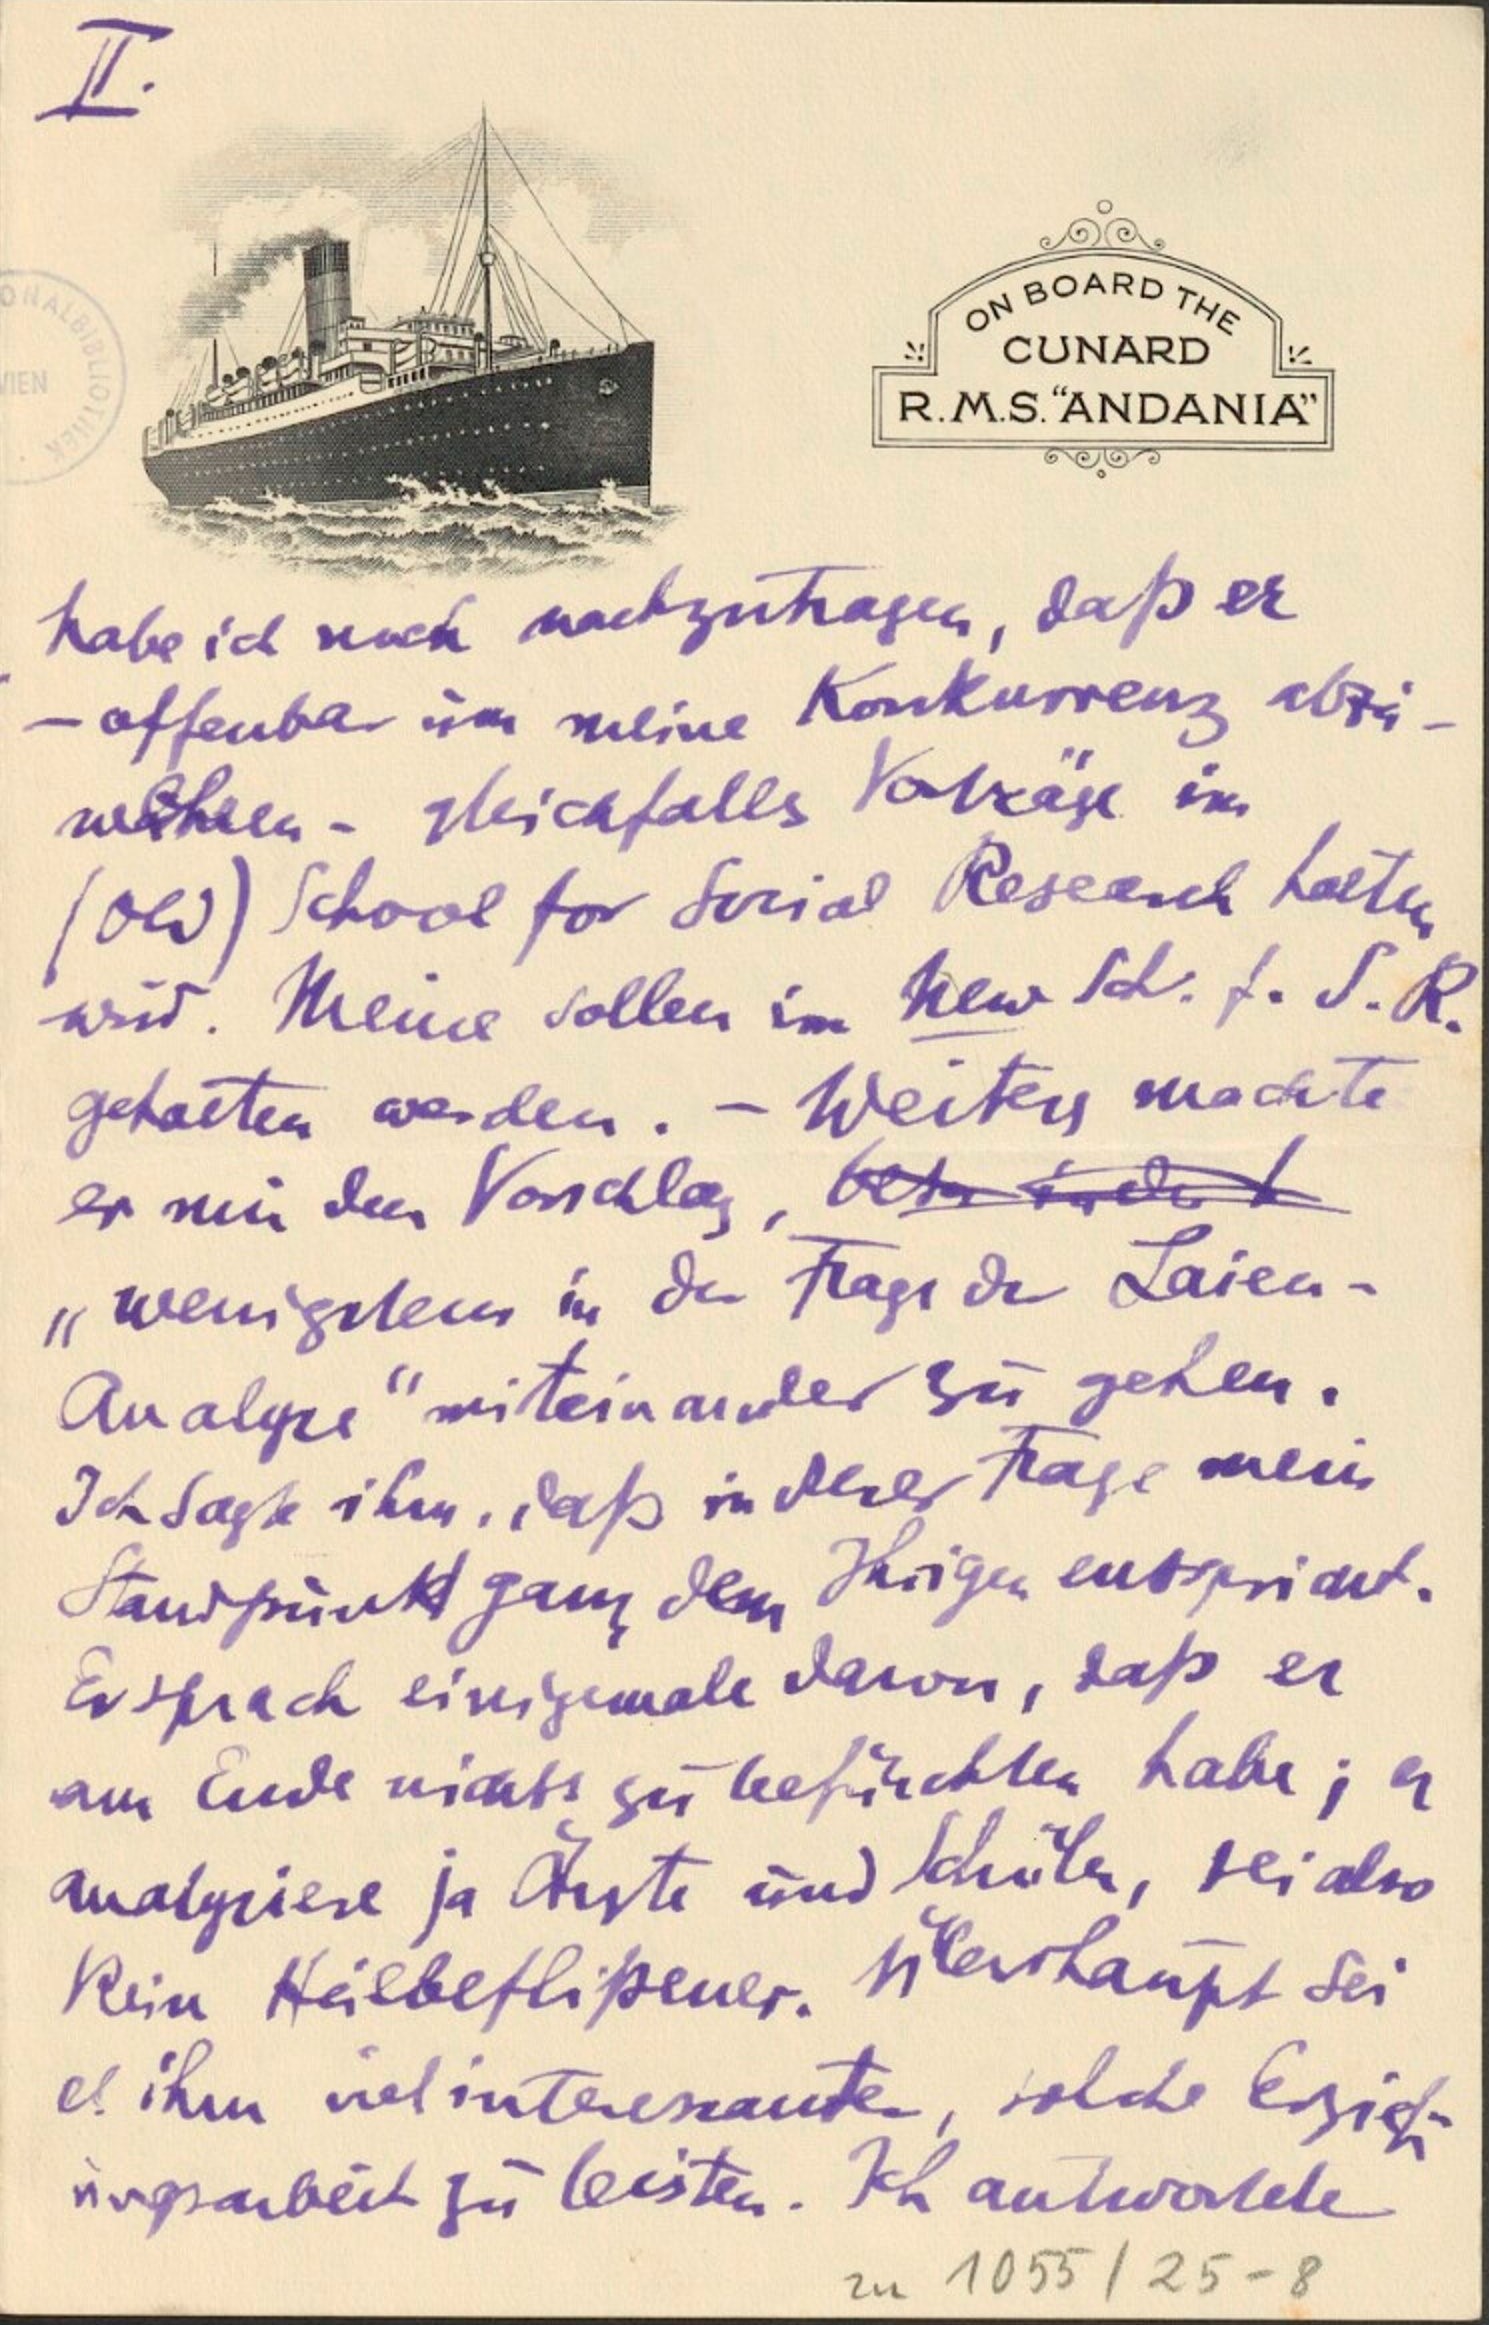 II.
ONALBIBLIOTHEK
WIEN
ON BOARD THE
CUNARD
R.M.S. "ANDANIA"
habe ich noch nachzutragen, daß er
– offenbar um meine Konkurrenz abzu-
wehren – gleichfalls Vorträge im
(Old) School for Social Research halten
wird. Meine sollen im New Sch. f. S. R.
gehalten werden. – Weiters machte
er mir den Vorschlag,
„wenigstens in der Frage der Laien-
Analyse" miteinander zu gehen.
Ich sagte ihm, daß in dieser Frage mein
Standpunkt ganz dem Ihrigen entspricht.
Er sprach einigemale davon, daß er
am Ende nichts zu befürchten habe; er
analysiere ja Ärzte und Schüler, sei also
kein Heilbeflißener. Überhaupt sei
es ihm viel interessanter, solche Erzieh-
ungsarbeit zu leisten. Ich antwortete
zu 1055/25-8